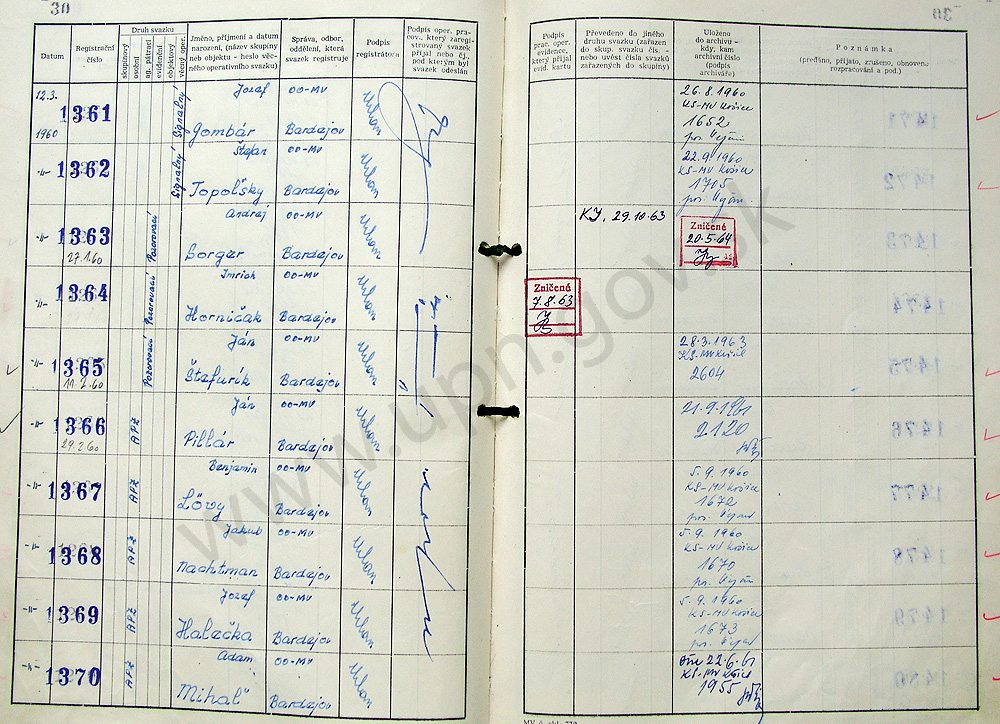 30
30
Datum
Registrační číslo
Druh svazku
skupinový
osobní
ag. pátrací
evidenční
objektový
věcný oper.
Jméno, příjmení a datum
narození, (název skupiny
neb objektu - heslo věc-
ného operativního svazku)
Správa, odbor,
oddělení, která
svazek registruje
Podpis
registrátora
Podpis oper. pra-
cov., který zaregi-
strovaný svazek
přijal nebo čj.,
pod kterým byl
svazek odeslán
Podpis
prac. oper.
evidence,
který přijal
evid. kartu
Převedeno do jiného
druhu svazku (zařazen
do skup. svazku čís. -
nebo uvést čísla svazků
zařazených do skupiny)
Uloženo
do archivu -
kdy, kam
archivní číslo
(podpis
archiváře)
Poznámka
(předáno, přijato, zrušeno, obnoveno
rozpracování a pod.)
12.3.
1960
1361
Signálný
Jozef
Gombár
OO-MV
Bardejov
Urban
26.8.1960
KS-MV Košice
1652
1471
-"-
1362
Signálný
Štefan
Topoľský
OO-MV
Bardejov
Urban
22.9.1960
KS-MV Košice
1705
1472
-"-
1363
27.1.60
Pozorovací
Andrej
Sorger
OO-MV
Bardejov
Urban
29.10.63
Zničené
20.5.64
1473
-"-
1364
Pozorovací
Imrich
Horničak
OO-MV
Bardejov
Urban
Zničené
7.8.63
1474
-"-
1365
11.2.60
Pozorovací
Ján
Štefurik
OO-MV
Bardejov
Urban
28.3.1963
KS-MV Košice
2604
1475
-"-
1366
29.2.60
APZ
Ján
Pillár
OO-MV
Bardejov
Urban
21.9.1961
2120
1476
-"-
1367
APZ
Benjamin
Lövy
OO-MV
Bardejov
Urban
5.9.1960
KS-MV Košice
1672
1477
-"-
1368
APZ
Jakub
Nachtman
OO-MV
Bardejov
Urban
5.9.1960
KS-MV Košice
1670
1478
-"-
1369
APZ
Jozef
Halečka
OO-MV
Bardejov
Urban
5.9.1960
KS-MV Košice
1673
1479
-"-
1370
APZ
Adam
Mihaľ
OO-MV
Bardejov
Urban
22.6.61
KS-MV Košice
1955
1480
www.upn.gov.sk